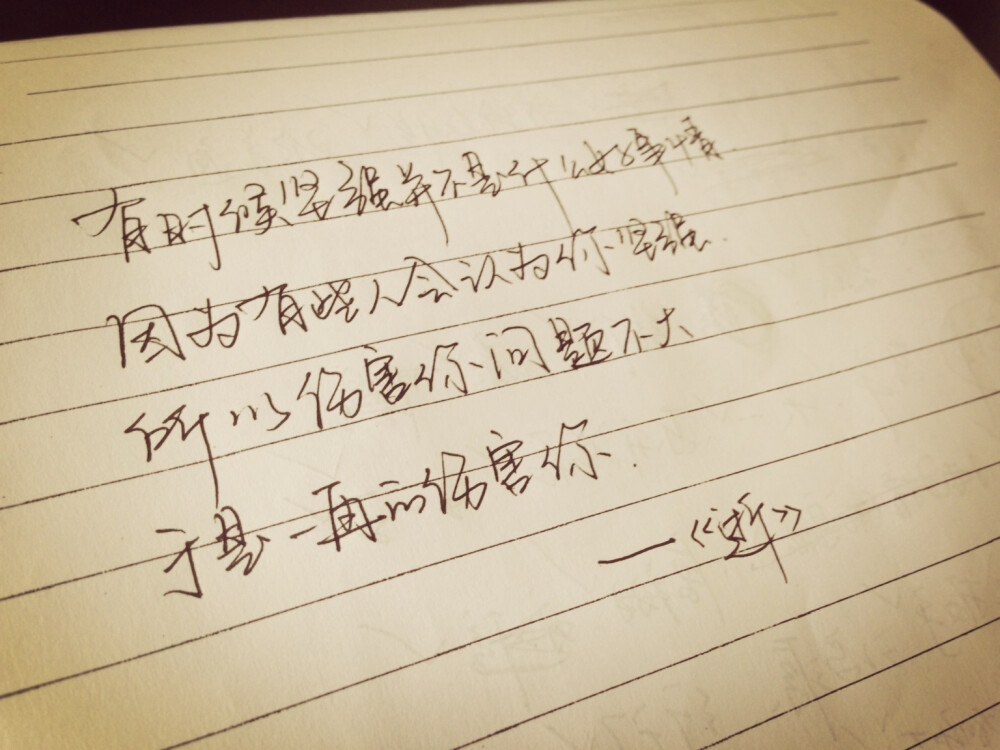 有时候坚强并不是什么好事情.
因为有些人会认为你坚强.
所以伤害你问题不大
于是一再的伤害你.
—《逝》